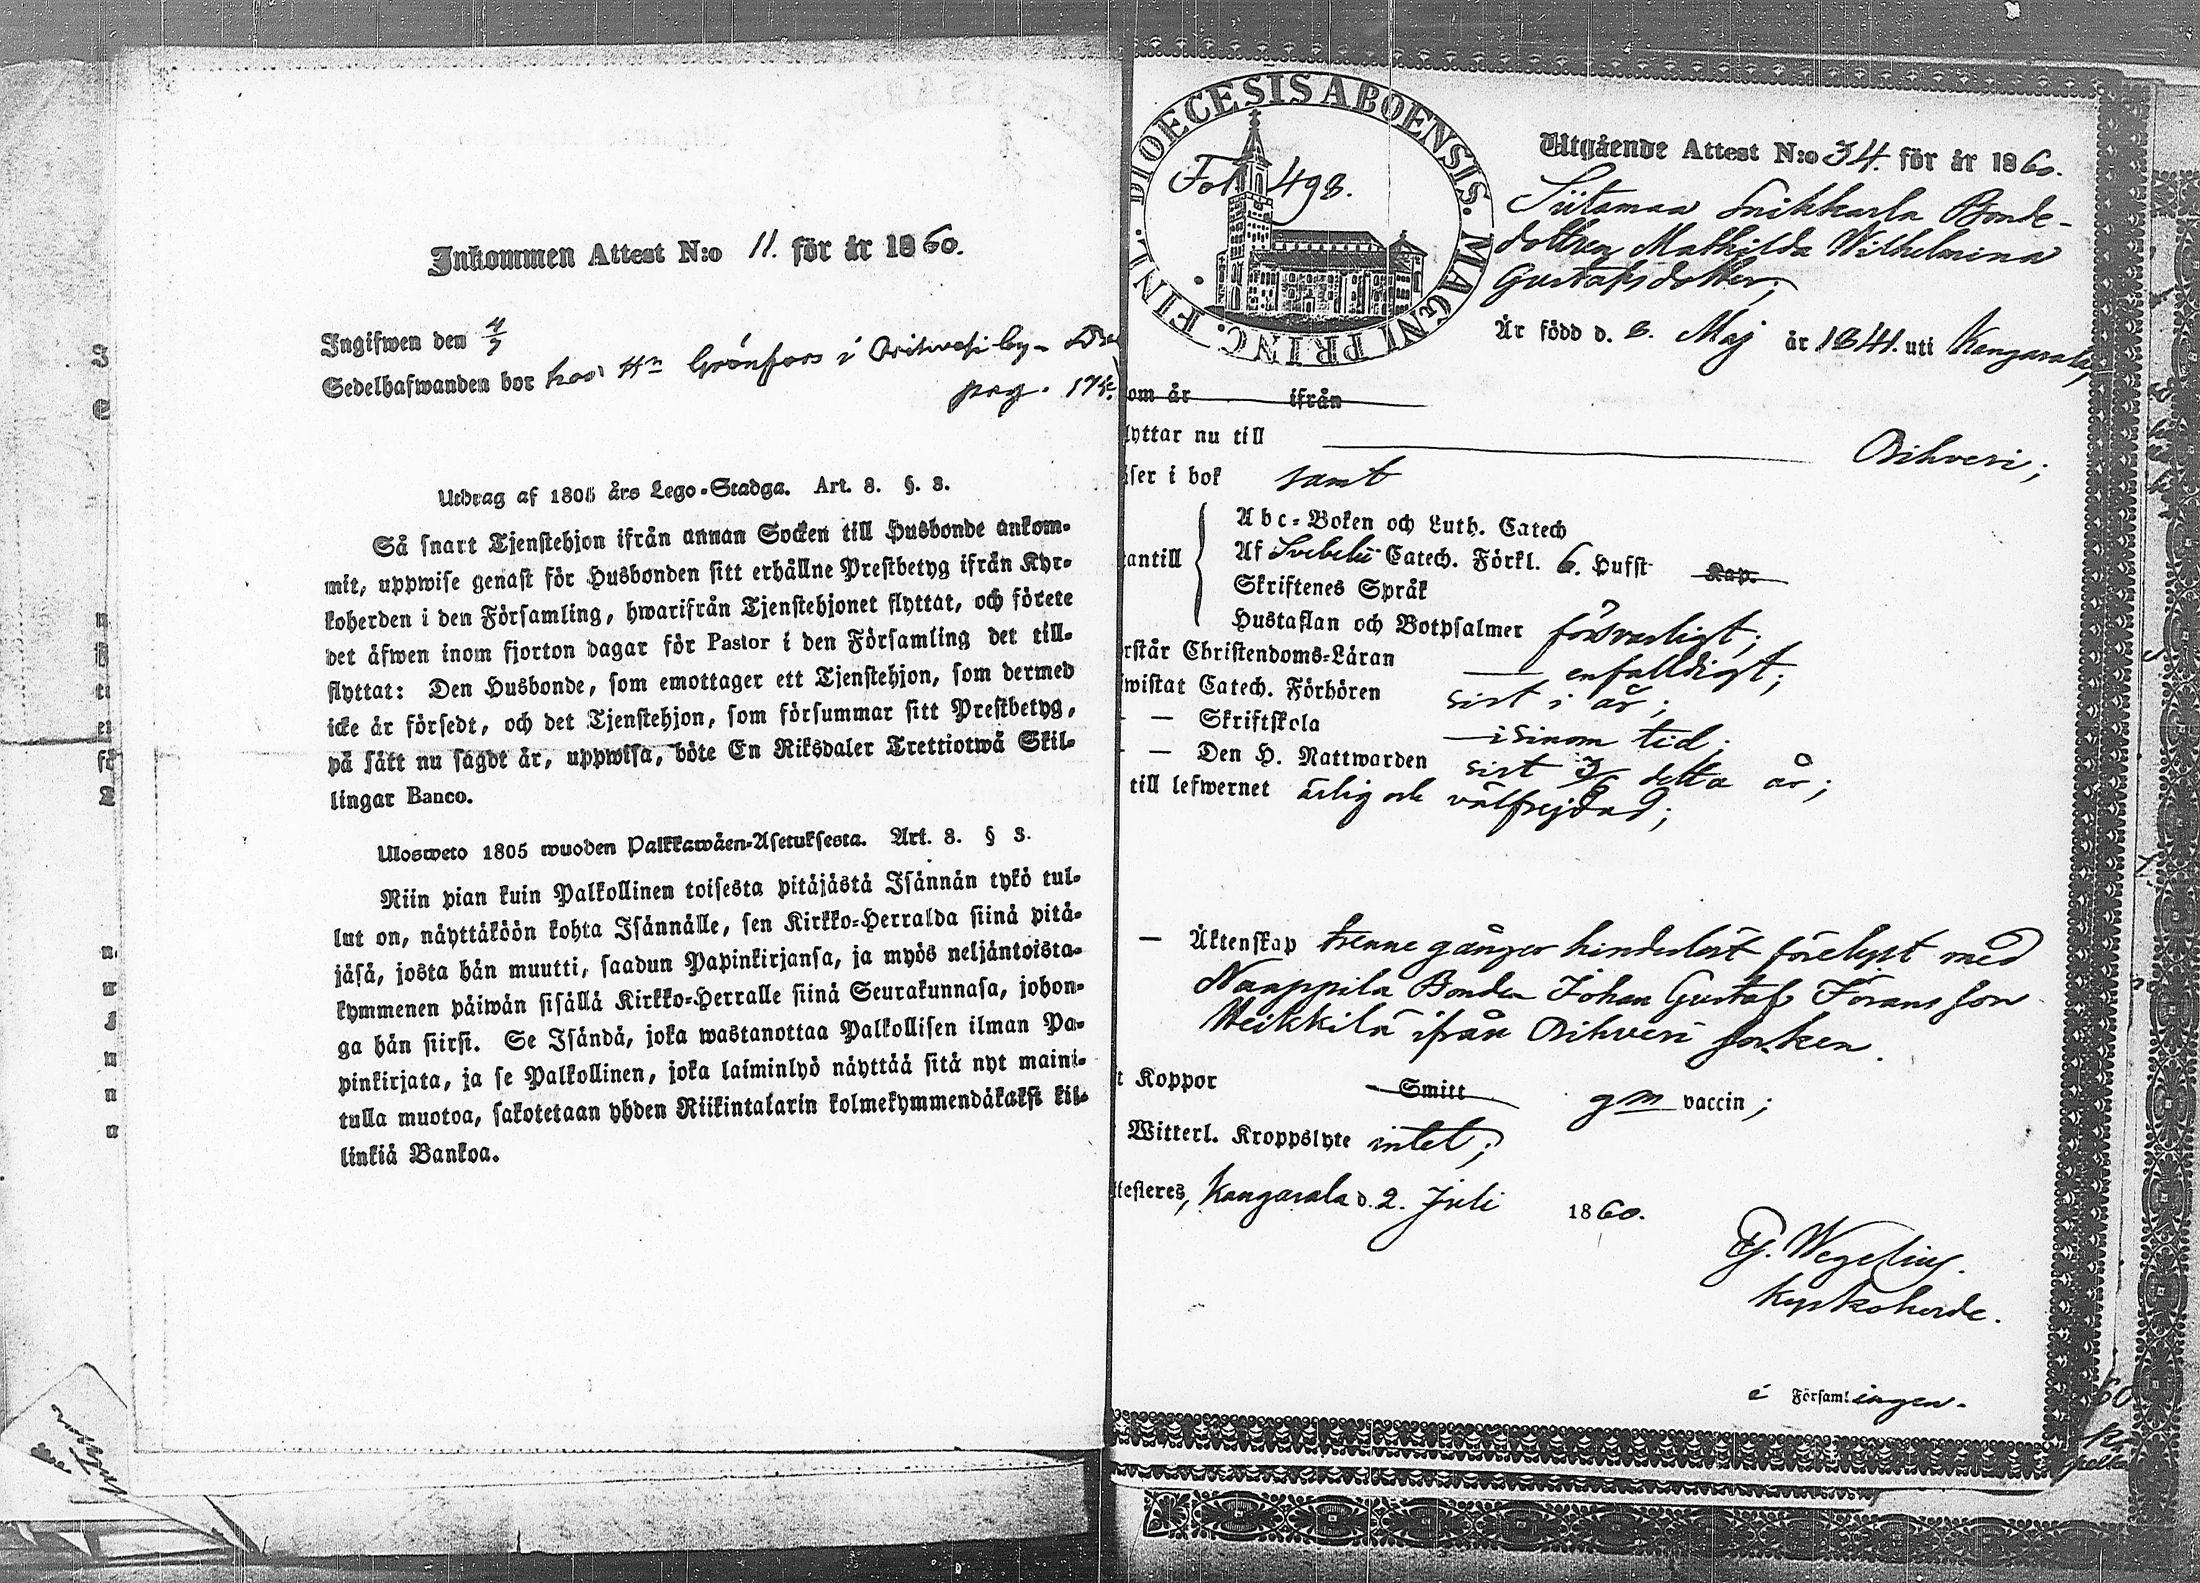 Inkommen Attest N:o 11. för år 1860.
Ingifwen den 4/7
Sedelhafwanden bor hos Hn Grönfors i Orihvesi by
pag. 174.
Utdrag af 1805 års Lego-Stadga. Art. 8. §. 3.
Så snart Tjenstehjon ifrån annan Socken till Husbonde ankom-
mit, uppwise genast för Husbonden sitt erhållne Prestbetyg ifrån Kyr-
koherden i den Församling, hwarifrån Tjenstehjonet flyttat, och förete
det äfwen inom fjorton dagar för Pastor i den Församling det till-
flyttat: Den Husbonde, som emottager ett Tjenstehjon, som dermed
icke är försedt, och det Tjenstehjon, som försummar sitt Prestbetyg,
på sätt nu sagdt är, uppwisa, böte En Riksdaler Trettiotwå Skil-
lingar Banco.
Ulosweto 1805 wuoden Palkkawäen-Asetuksesta. Art. 8. § 3.
Niin pian kuin Palkollinen toisesta pitäjästä Isännän tykö tul-
lut on, näyttäköön kohta Isännälle, sen Kirkko-Herralda siinä pitä-
jäsä, josta hän muutti, saadun Papinkirjansa, ja myös neljäntoista-
kymmenen päiwän sisällä Kirkko-Herralle siinä Seurakunnasa, johon-
ga hän siirsi. Se Isändä, joka wastanottaa Palkollisen ilman Pa-
pinkirjata, ja se Palkollinen, joka laiminlyö näyttää sitä nyt maini-
tulla muotoa, sakotetaan yhden Riikintalarin kolmekymmendäkaksi kil-
linkiä Bankoa.
DIOECESIS ABOENSIS. MAGNI PRINC. FINL.
Fol 498.
Utgående Attest N:o 34. för år 1860.
Siitamaa Knikkarla Bonde-
dottren Mathilda Wilhelmina
Gustafsdotter;
Är född d. 8. Maj år 1841. uti Kangasala,
om år ifrån
lyttar nu till Orihvesi;
äser i bok samt
antill
Abc-Boken och Luth. Catech
Af Svebelii Catech. Förkl. 6. Hufst Kap.
Skriftenes Språk
Hustaflan och Botpsalmer försvarligt;
rstår Christendoms-Läran enfalldigt;
wistat Catech. Förhören sist i år;
— — Skriftskola i sinom tid;
— — Den H. Nattwarden sist 3/6 detta år;
till lefwernet ärlig och välfrejdad;
— Äktenskap trenne gånger hinderlöst förelyst med
Naappila Bonden Johan Gustaf Göransson
Heikkilä ifrån Orihvesi socken.
t Koppor Smitt gm vaccin;
Witterl. Kroppslyte intet;
ttesteres, Kangasala d. 2. Juli 1860.
Wegelius.
Kyrkoherde.
i Församlingen.